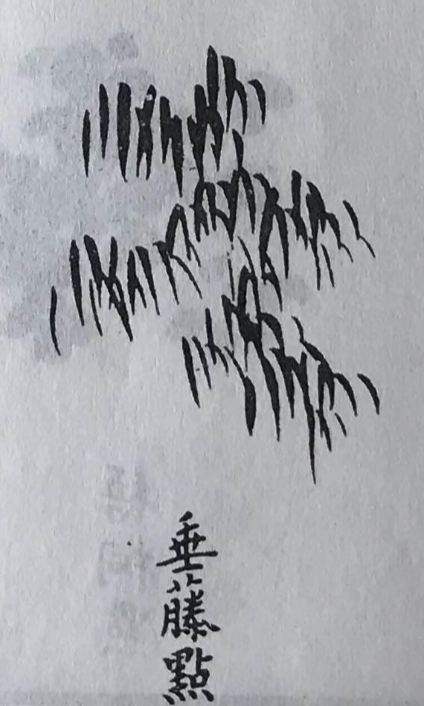 垂藤點